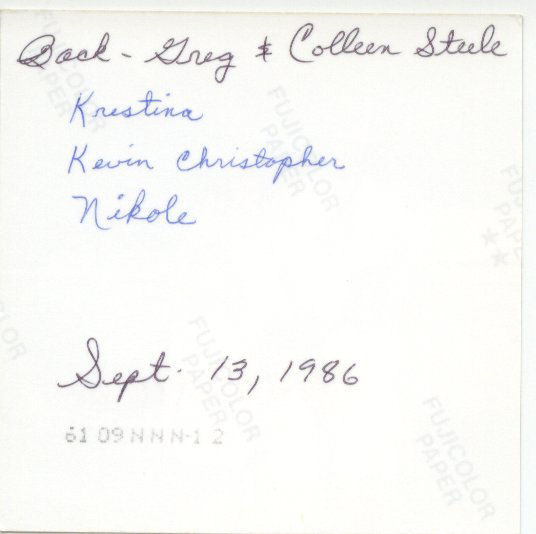 Back - Greg & Colleen Steele
Krestina
Kevin Christopher
Nikole
Sept. 13, 1986
61 09 N N N-1 2
FUJICOLOR
PAPER
FUJICOLOR
PAPER
FUJICOLOR
PAPER
FUJICOLOR
PAPER